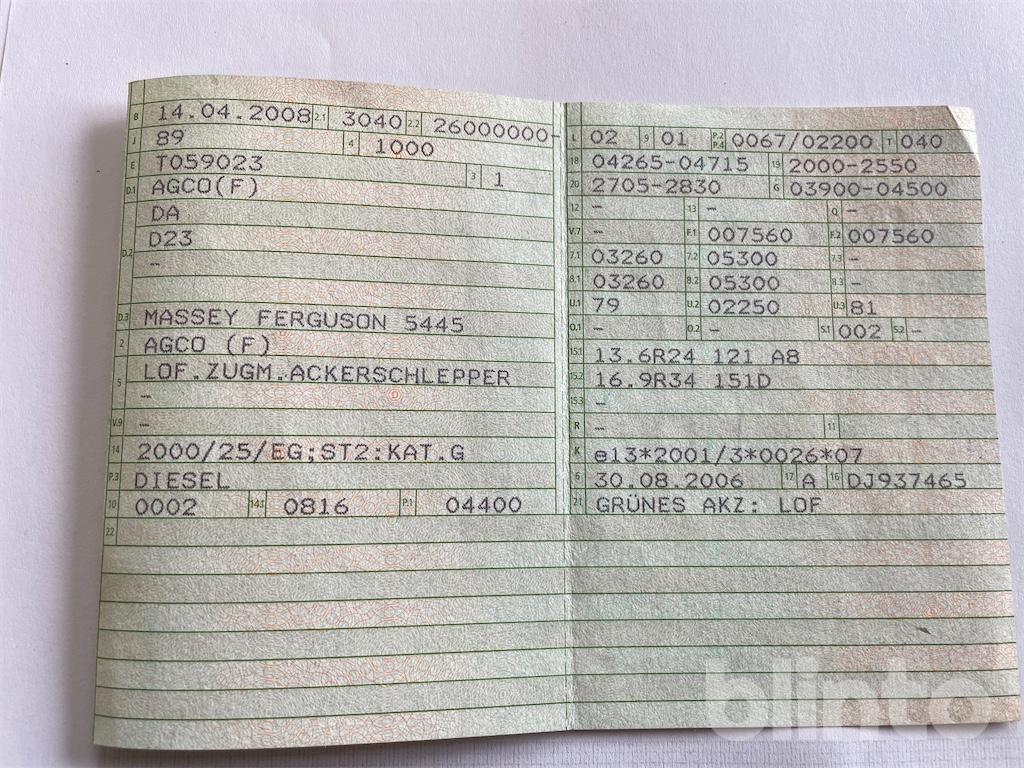 B 14.04.2008 2.1 3040 2.2 26000000-
J 89 4 1000
E T059023 3 1
D.1 AGCO(F)
DA
D.2 D23
-
D.3 MASSEY FERGUSON 5445
2 AGCO (F)
5 LOF.ZUGM.ACKERSCHLEPPER
-
V.9 -
14 2000/25/EG;ST2:KAT.G
P.3 DIESEL
10 0002 14.1 0816 P.1 04400
22
L 02 9 01 P.2 P.4 0067/02200 T 040
18 04265-04715 19 2000-2550
20 2705-2830 G 03900-04500
12 - 13 - Q -
V.7 - F.1 007560 F.2 007560
7.1 03260 7.2 05300 7.3 -
8.1 03260 8.2 05300 8.3 -
U.1 79 U.2 02250 U.3 81
O.1 - O.2 - S.1 002 S.2 -
15.1 13.6R24 121 A8
15.2 16.9R34 151D
15.3 -
R - 11
K e13*2001/3*0026*07
6 30.08.2006 17 A 16 DJ937465
21 GRÜNES AKZ: LOF
blinto